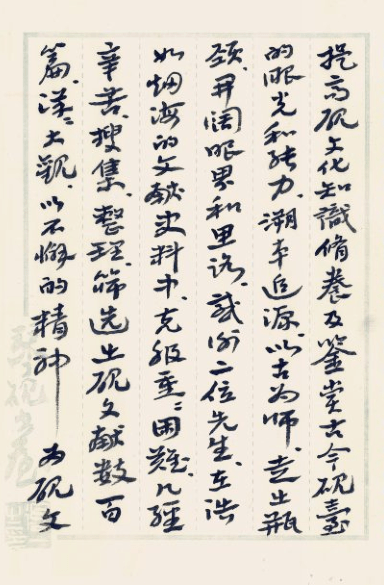 提高砚文化知識脩養及鉴赏古今砚臺
的眼光和能力溯本追源以古为师走出瓶
颈开阔眼界和思路感谢二位先生在浩
如烟海的文献史料中克服重重困难几經
辛苦搜集整理筛选出砚文献数百
篇洋洋大观以不懈的精神为砚文